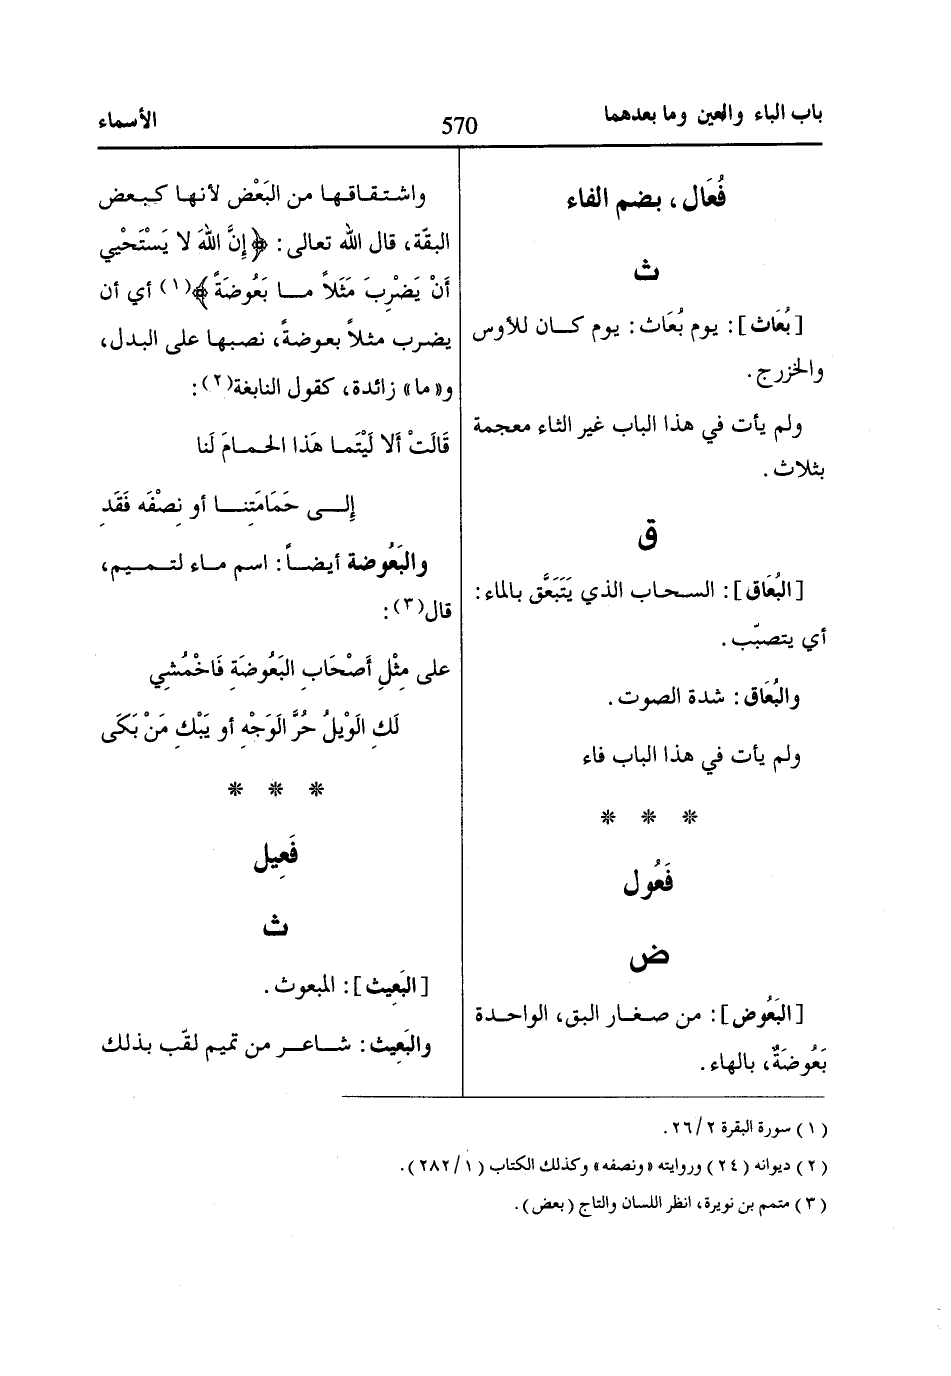 باب الباء والعين وما بعدهما
570
الأسماء
فُعَال، بضم الفاء
ث
[بُعَاث]: يوم بُعَاث: يوم كان للأوس
والخزرج.
ولم يأت في هذا الباب غير الثاء معجمة
بثلاث.
ق
[البُعَاق]: السحاب الذي يَتَبَعَّق بالماء:
أي يتصبّب.
والبُعَاق: شدة الصوت.
ولم يأت في هذا الباب فاء
* * *
فَعُول
ض
[البَعُوض]: من صغار البق، الواحدة
بَعُوضَةٌ، بالهاء.
واشتقاقها من البَعْض لأنها كبعض
البقّة، قال الله تعالى: ﴿إِنَّ اللهَ لا يَسْتَحْيي
أَنْ يَضْرِبَ مَثَلاً ما بَعُوضَةً﴾(١) أي أن
يضرب مثلاً بعوضةً، نصبها على البدل،
و«ما» زائدة، كقول النابغة(٢):
قَالَتْ ألا لَيْتَما هَذا الحمامَ لَنا
إلى حَمَامَتِنا أو نِصْفَه فَقَدِ
والبَعُوضة أيضاً: اسم ماء لتميم،
قال(٣):
على مِثْلِ أَصْحَابِ البَعُوضَةِ فَاخْمُشي
لَكِ الوَيْلُ حُرَّ الوَجْهِ أو يَبْكِ مَنْ بَكَى
* * *
فَعِيل
ث
[البَعِيث]: المبعوث.
والبَعِيث: شاعر من تميم لقّب بذلك
(١) سورة البقرة ٢/ ٢٦.
(٢) ديوانه (٢٤) وروايته «ونصفه» وكذلك الكتاب (١/ ٢٨٢).
(٣) متمم بن نويرة، انظر اللسان والتاج (بعض).